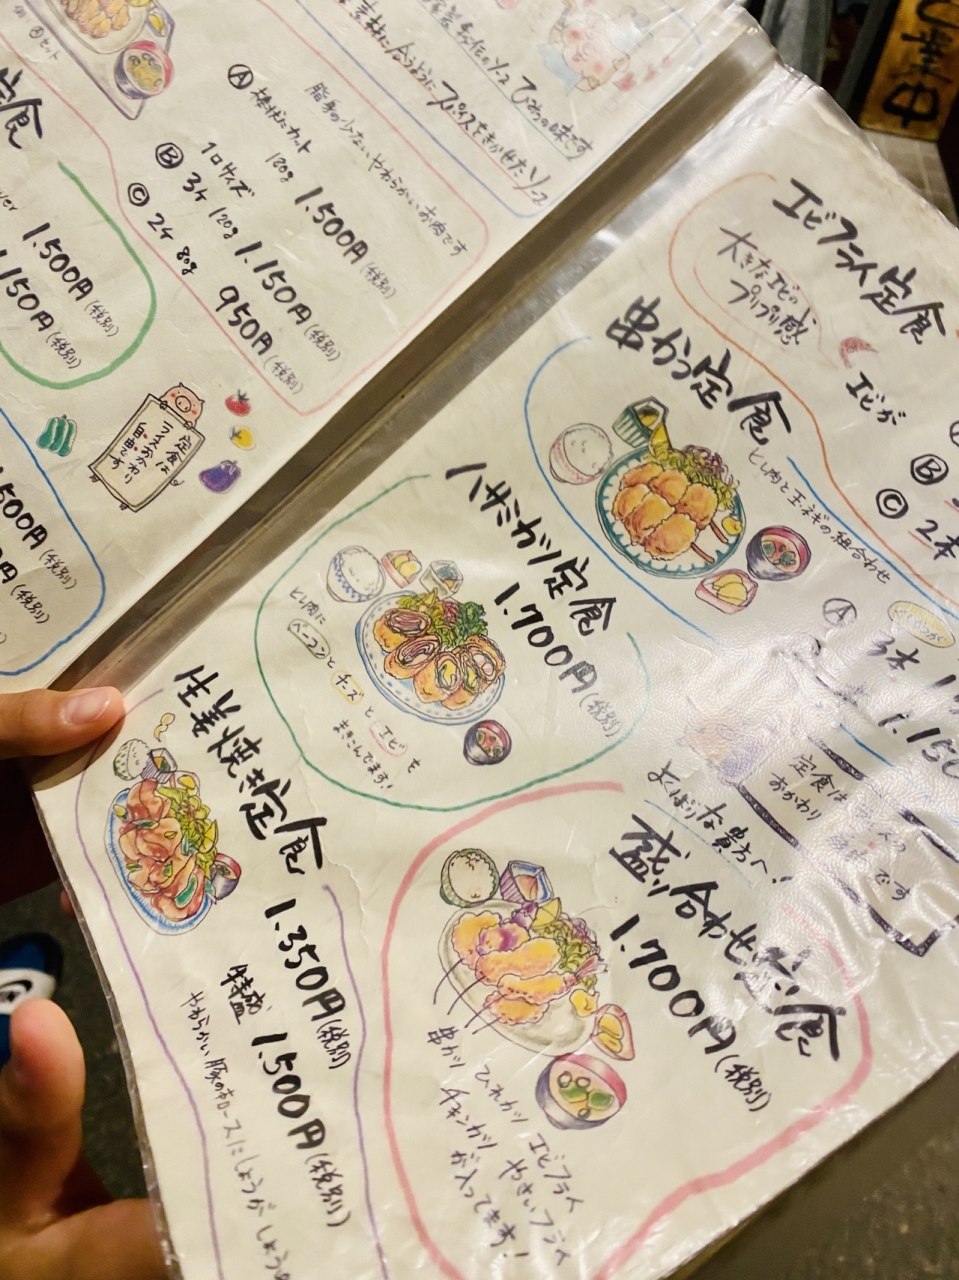 定食
1.500円(税別)
1.150円(税別)
脂身の少ないやわらかいお肉です
Ⓐ 棒状にカット 120g 1.500円(税別)
Ⓑ 1口サイズ 3ケ 120g 1.150円(税別)
Ⓒ 2ケ 80g 950円(税別)
スパイスをきかせたソース
ひめちの味です
定食は
ライスおかわり
自由です
500円(税別)
円(税別)
エビフライ定食
大きなエビの
プリプリ感
エビが
Ⓑ
Ⓒ 2本
串かつ定食
とし肉と玉ネギの組合わせ
Ⓐ
3本
1.150
ハサミカツ定食
1.700円(税別)
とし肉に
ベーコンと
チーズ
と エビを
まきこんでます!
定食は
おかわり
です
よくばりな貴方へ!
盛り合わせ定食
1.700円(税別)
串カツ ひれカツ エビフライ
チキンカツ やさいフライ
が入ってます!
生姜焼き定食
1.350円(税別)
特盛 1.500円(税別)
やわらかい豚の肩ロースにしょうがしょうゆ